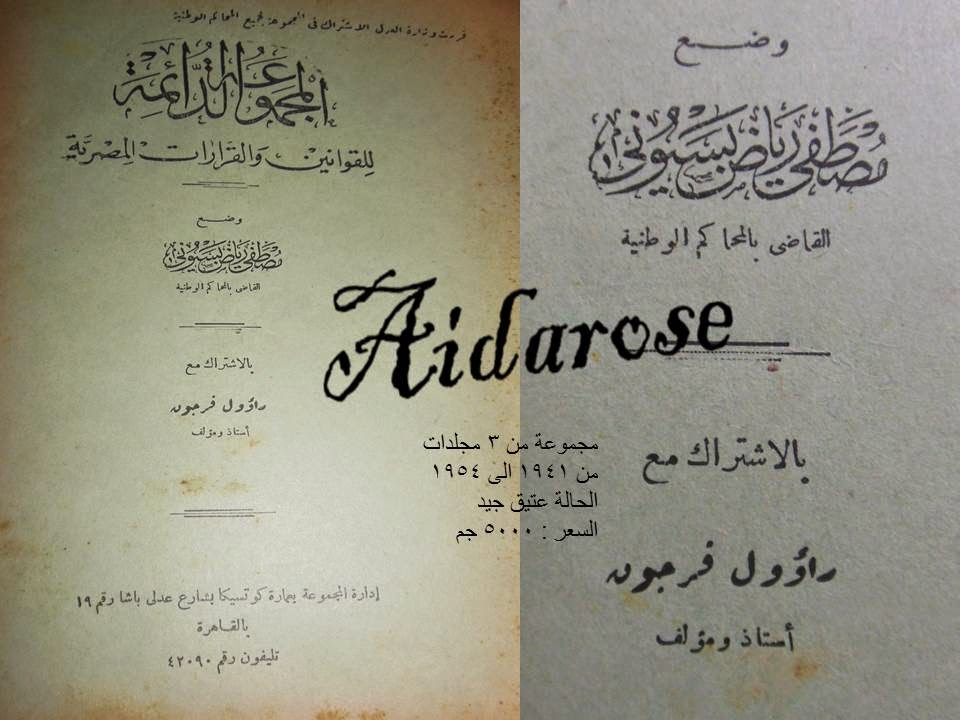 قررت وزارة العدل الاشتراك فى المجموعة لجميع المحاكم الوطنية
المجموعة الدَّائمة
للقوانين والقرارات المصريَّة
وضع
مصطفى رياض بسيونى
القاضى بالمحاكم الوطنية
بالاشتراك مع
راؤول فرجون
أستاذ ومؤلف
إدارة المجموعة بعمارة كوتسيكا بشارع عدلى باشا رقم ١٩
بالقاهرة
تليفون رقم ٤٢٠٩٠
Aidarose
مجموعة من ٣ مجلدات
من ١٩٤١ الى ١٩٥٤
الحالة عتيق جيد
السعر : ٥٠٠٠ جم
وضع
مصطفى رياض بسيونى
القاضى بالمحاكم الوطنية
بالاشتراك مع
راؤول فرجون
أستاذ ومؤلف